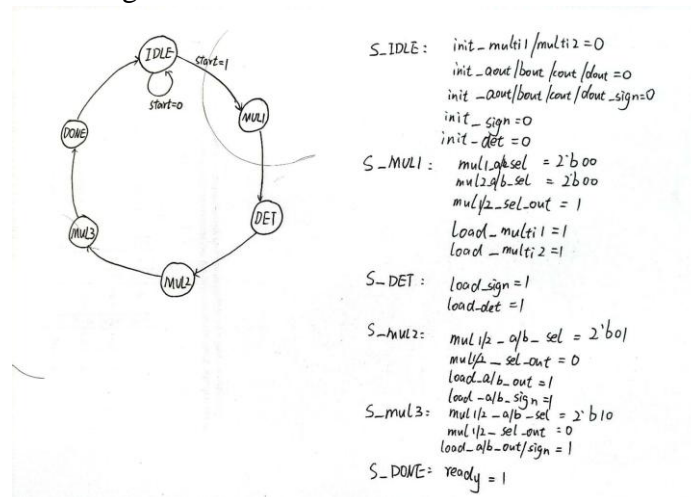 IDLE
start=1
start=0
MUL1
DONE
DET
MUL3
MUL2
S_IDLE: init_multi1/multi2=0
init_aout/bout/cout/dout=0
init_aout/bout/cout/dout_sign=0
init_sign=0
init-det=0
S_MUL1: mul1_a/bsel = 2'b00
mul2_a/b_sel = 2'b00
mul1/2_sel_out = 1
load_multi1=1
load_multi2=1
S_DET: load_sign=1
load_det=1
S_mul2: mul1/2_a/b_sel = 2'b01
mul1/2_sel_out = 0
load_a/b_out=1
load_a/b_sign=1
S_mul3: mul1/2_a/b_sel = 2'b10
mul1/2_sel_out = 0
load_a/b_out/sign = 1
S_DONE: ready = 1